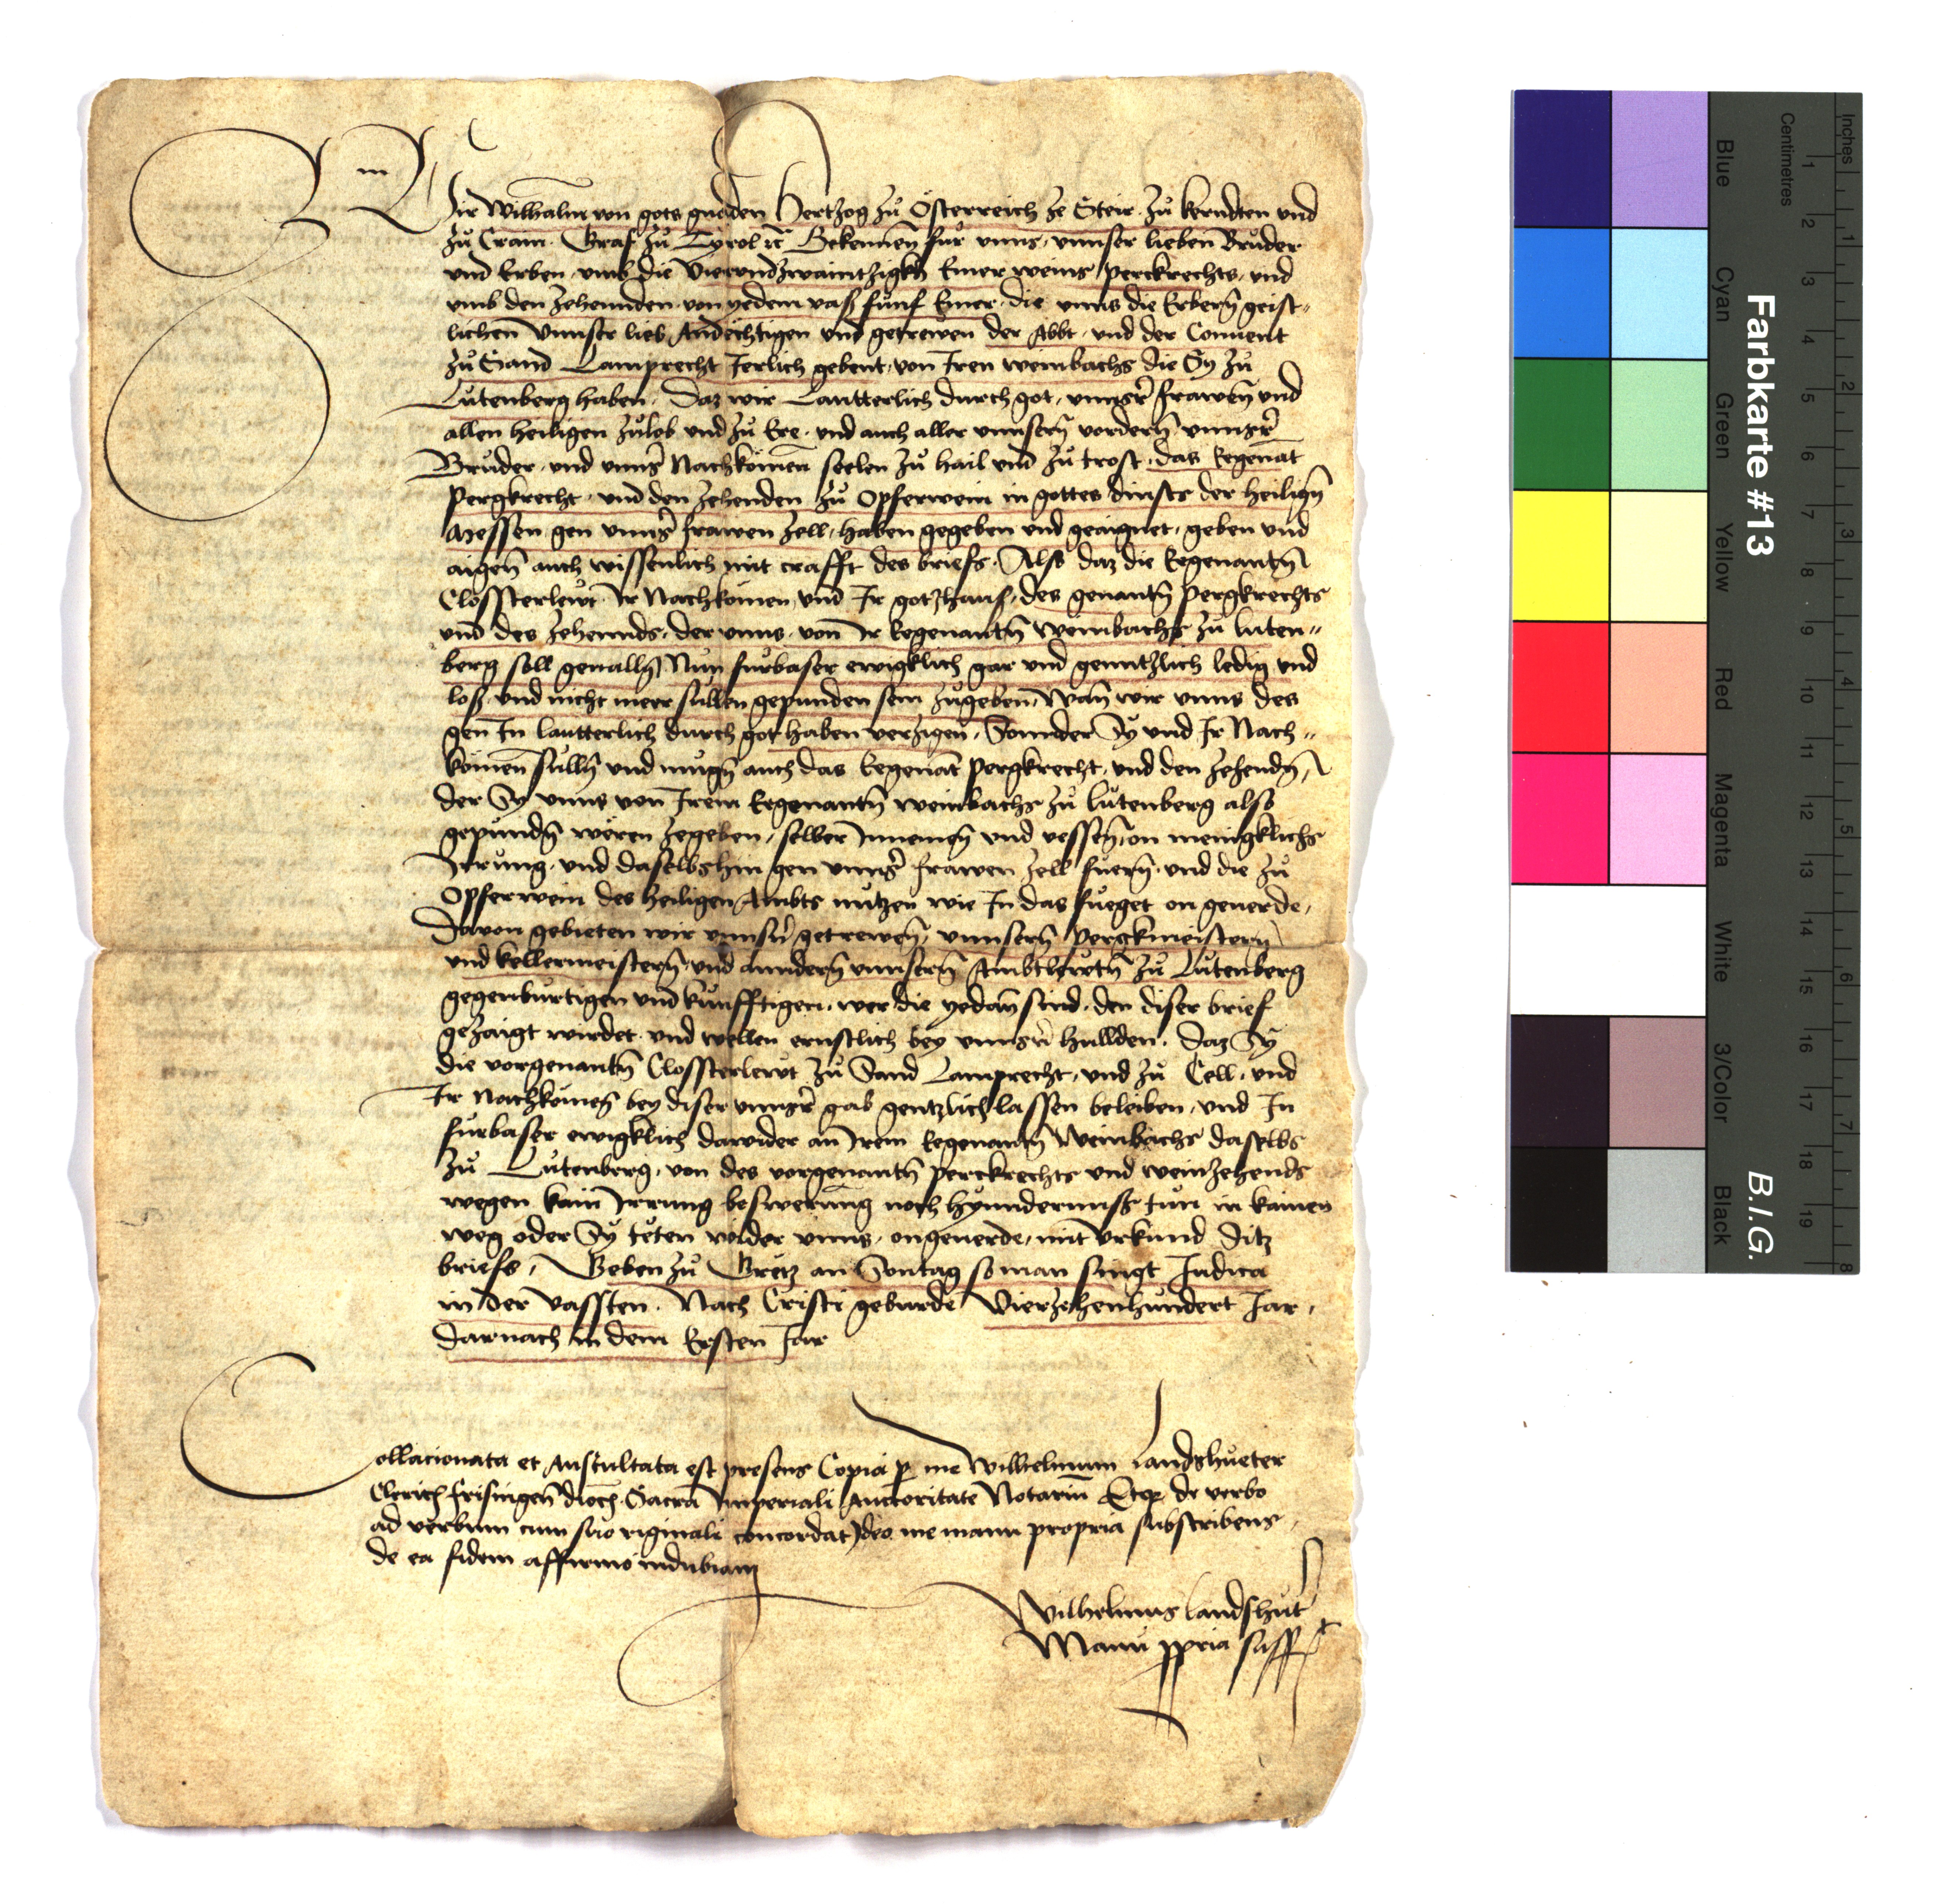 Wir Wilhalm von gots gnaden Hertzog zů Österreich ze Steir zů kerndten und
zů Crain. Graf zů Tyrol ꝛc̃ Bekennen̄ für unns, unnser lieben Brüder
und Erben, umb die Vierundzwaintzigkh Emer weins perckrechts, und
umb den zehennden, von yedem vass fünf Emer, die unns die Erbern̄ geist„
lichen Unnser lieb Andechtigen und getrewen der Abbt, und der Convent
zů Sand Lamprecht Jerlich gebent, von Iren weinbachs die Sy zů
Lůtenberg haben. Daz wir Lautterlich durch got, unnsr̄ frawen̄ und
allen heiligen zůlob und zů Ere, und auch aller unnsern̄ vordern̄ unnsr̄
Brüder, und unnsr̄ Nachkömen̄ seelen zů hail und zů trost, das Egenāt
Pergkrecht, und den zehenden zů Opferwein in gottes dinsts der heilign̄
Messen gen unnsr̄ frawen Zell, haben gegeben und geaignet, geben und
aigen̄ auch wissenlich mit crafft des briefs. Also daz die Egenantn̄
Clossterlewt Ir Nachkömen, und Ir gotzhaus, des genantn̄ Pergkrechts
und des zehennds, der unns, von Ir Egenantn̄ Weinbachs zů Luten„
berg soll gevalln̄ Nůn fürbaser ewigklich gar und genntzlich ledig und
loss, und nicht meer süllen gepunden sein zůgeben, Wan̄ wir unns des
gen In lautterlich durch got haben verzigen, Sonnder Sy und Ir Nach„
kömen̄ sülln̄ und mügn̄ auch das Egenāt Pergkrecht, und den zehendn̄,
der Sy unns von Irem Egenantn̄ weinbachs zů Lůtenberg also
gepundn̄ weren zegeben, selber Innemen̄ und vessen̄, on menigklichs
Irrung, und daselbs hin gen unnsr̄ frawen Zell fuern̄, und die zů
Opferwein des heiligen Ambts nutzen wie In das fueget on geuerde,
Davon gebieten wir unnsn̄ getrewen̄, unnsern̄ Pergkmeistern̄
und kellermeistern̄, und anndern̄ unnsern̄ Ambtlewtn̄ zů Lůtenberg
gegenbürtigen und künfftigen, wer die yedan̄ sind, den diser brief
gezaigt wirdet, und wellen ernstlich bey unnsrn̄ hullden. Daz Sy
die vorgenantn̄ Clossterlewt zů Sand Lamprecht, und zů Cell, und
Ir Nachkömen̄ bey diser unnsr̄ gab gentzlich lassen beleiben, und In
fürbaser ewigklich darwider an Irem Egenantn̄ Weinbachs daselbs
zů Lůtenberg, von des vorgenantn̄ perckrechts und weinzehends
wegen kain Irrung beswerung noch hynndernuss tün in kainen
weg oder Sy teten wider unns, ongeuerde, mit Urkund Ditz
briefs, Geben zů Gretz an Sontag so man singt Judica
in der Vassten. Nach Cristi geburde Vierzehenhundert Jar,
Darnach in dem Ersten Jar
Collacionata et Auscultata est presens Copia ꝑ me Wilhelmum Landshueter
Cleric̄ frisingen̄ dioc̄. Sacra Imperiali Auctoritate Notariū Etqꝫ de verbo
ad verbum cum suo riginali concordat Ideo me manu propria subscribens,
de ea fidem affirmo indubiam
Wilhelmus Landshut̄
Manu ꝓpria ss̄ſpt